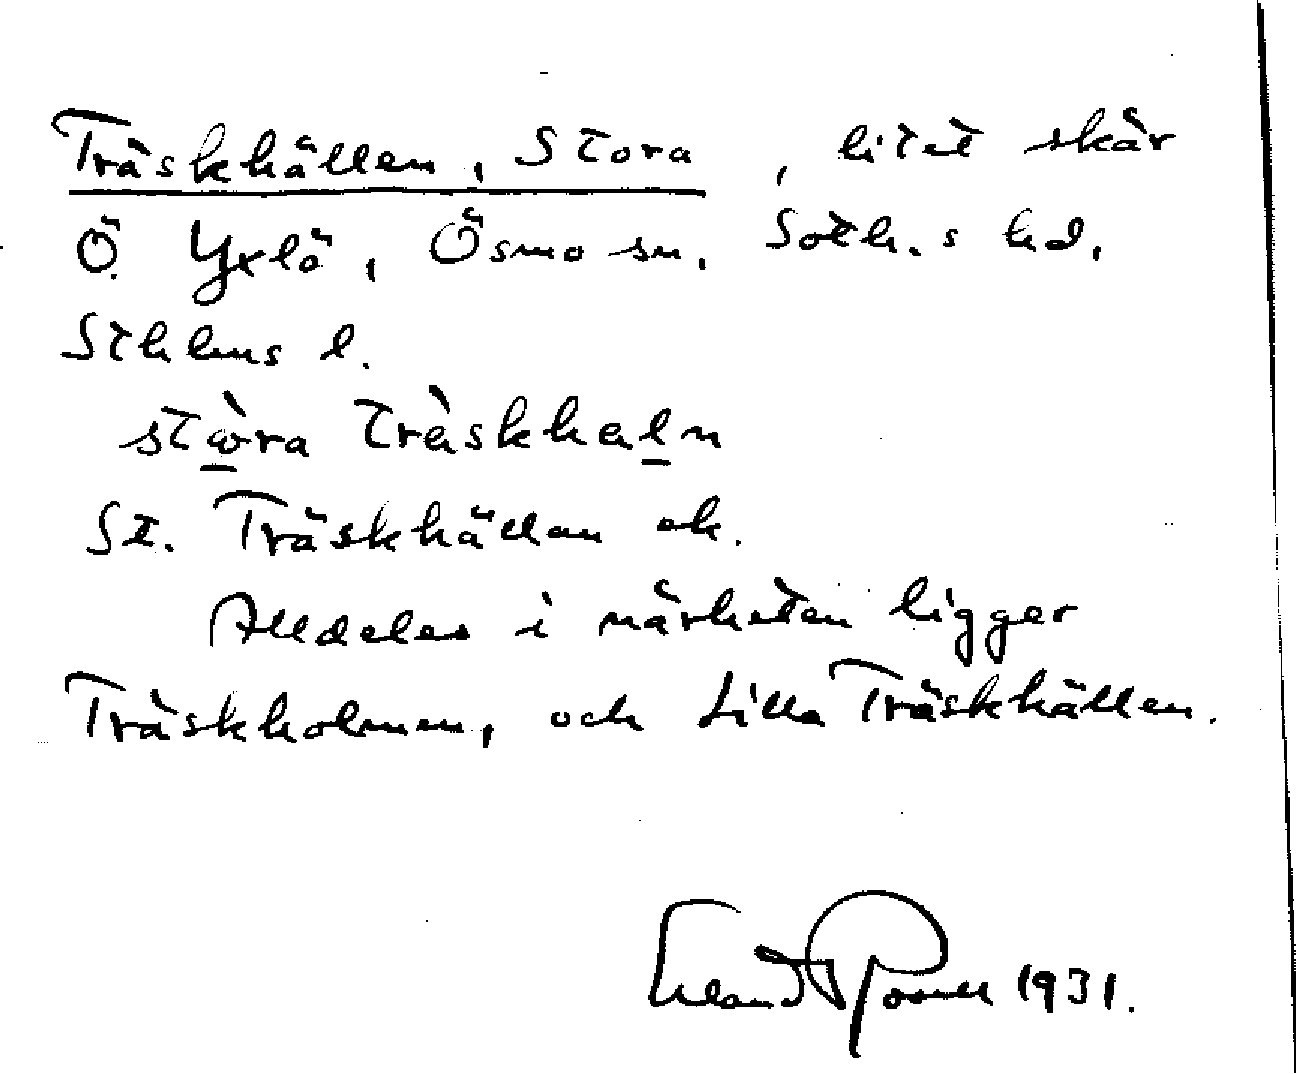 Träskhällen, Stora, litet skär
Ö. Yxlö, Ösmo sn. Soth.s hd.
Sthlms l.
stòra tràskhaln
St. Träskhällan ek.
Alldeles i närheten ligger
Träskholmen, och Lilla Träskhällen.
Erland 1931.